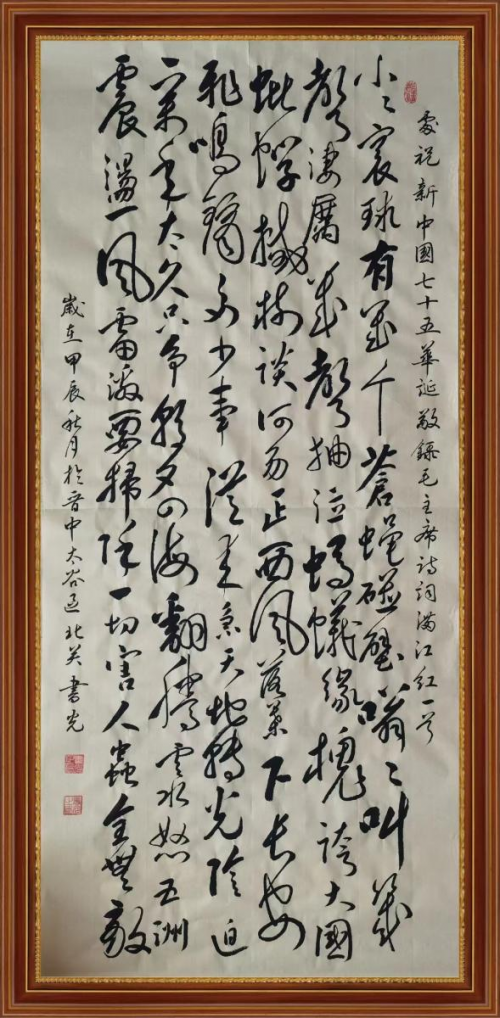 慶祝新中國七十五華誕敬錄毛主席詩詞滿江紅一首
小〻寰球有幾个蒼蠅碰壁嗡〻叫幾
聲淒厲幾聲抽泣螞蟻緣槐誇大國
蚍蜉撼樹談何易正西風落葉下長安
飛鳴鏑多少事從來急天地轉光陰迫
一萬年太久只爭朝夕四海翻騰雲水怒五洲
震盪風雷激要掃除一切害人蟲全無敵
歲在甲辰秋月於晉中太谷北关書光